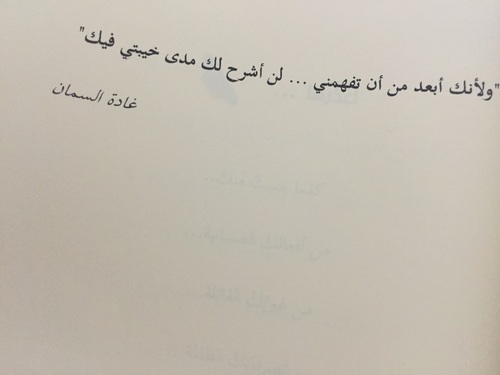 "ولأنك أبعد من أن تفهمني ... لن أشرح لك مدى خيبتي فيك"
غادة السمان